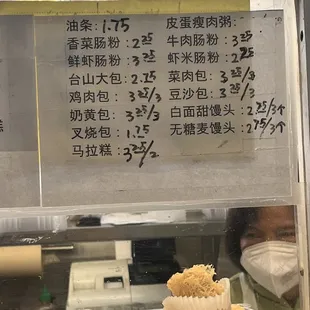 油条: 1.75
香菜肠粉: 2.25
鲜虾肠粉: 3.25
台山大包: 2.25
鸡肉包: 3.25/3
奶黄包: 3.25/3
叉烧包: 1.75
马拉糕: 3.25/2
皮蛋瘦肉粥:
牛肉肠粉: 3.25
虾米肠粉: 2.25
菜肉包: 3.25/3
豆沙包: 3.25/3
白面甜馒头: 2.75/3个
无糖麦馒头: 2.75/3个
糕